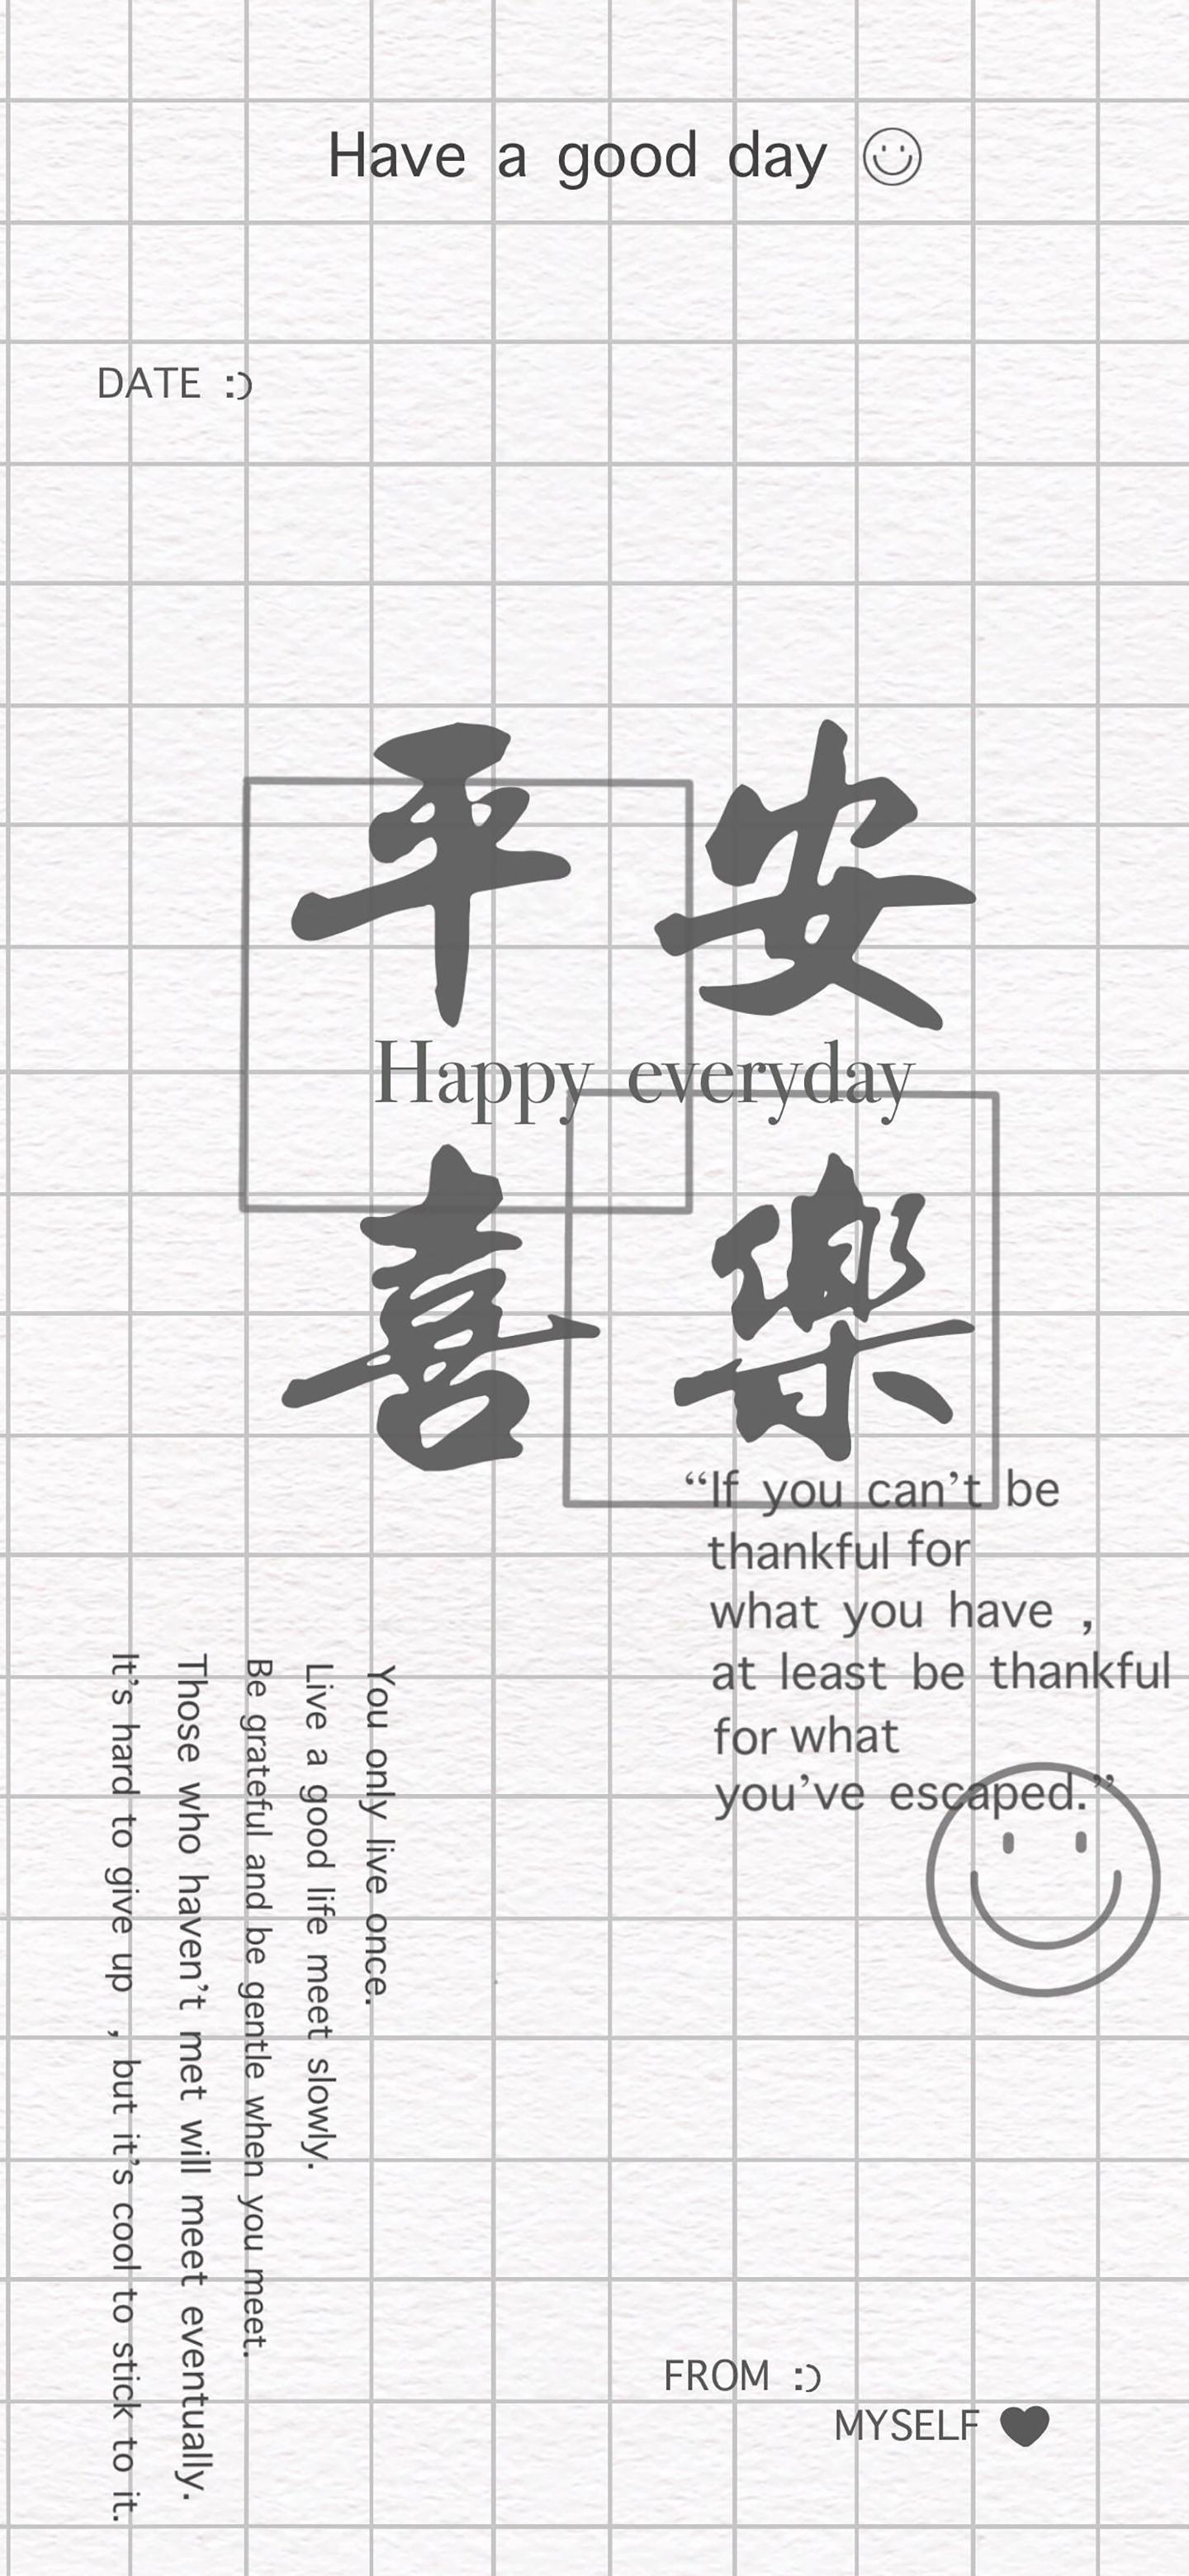 Have a good day
DATE :)
平安
Happy everyday
喜樂
“If you can’t be
thankful for
what you have ,
at least be thankful
for what
you’ve escaped.”
You only live once.
Live a good life meet slowly.
Be grateful and be gentle when you meet.
Those who haven’t met will meet eventually.
It’s hard to give up , but it’s cool to stick to it.
FROM :)
MYSELF